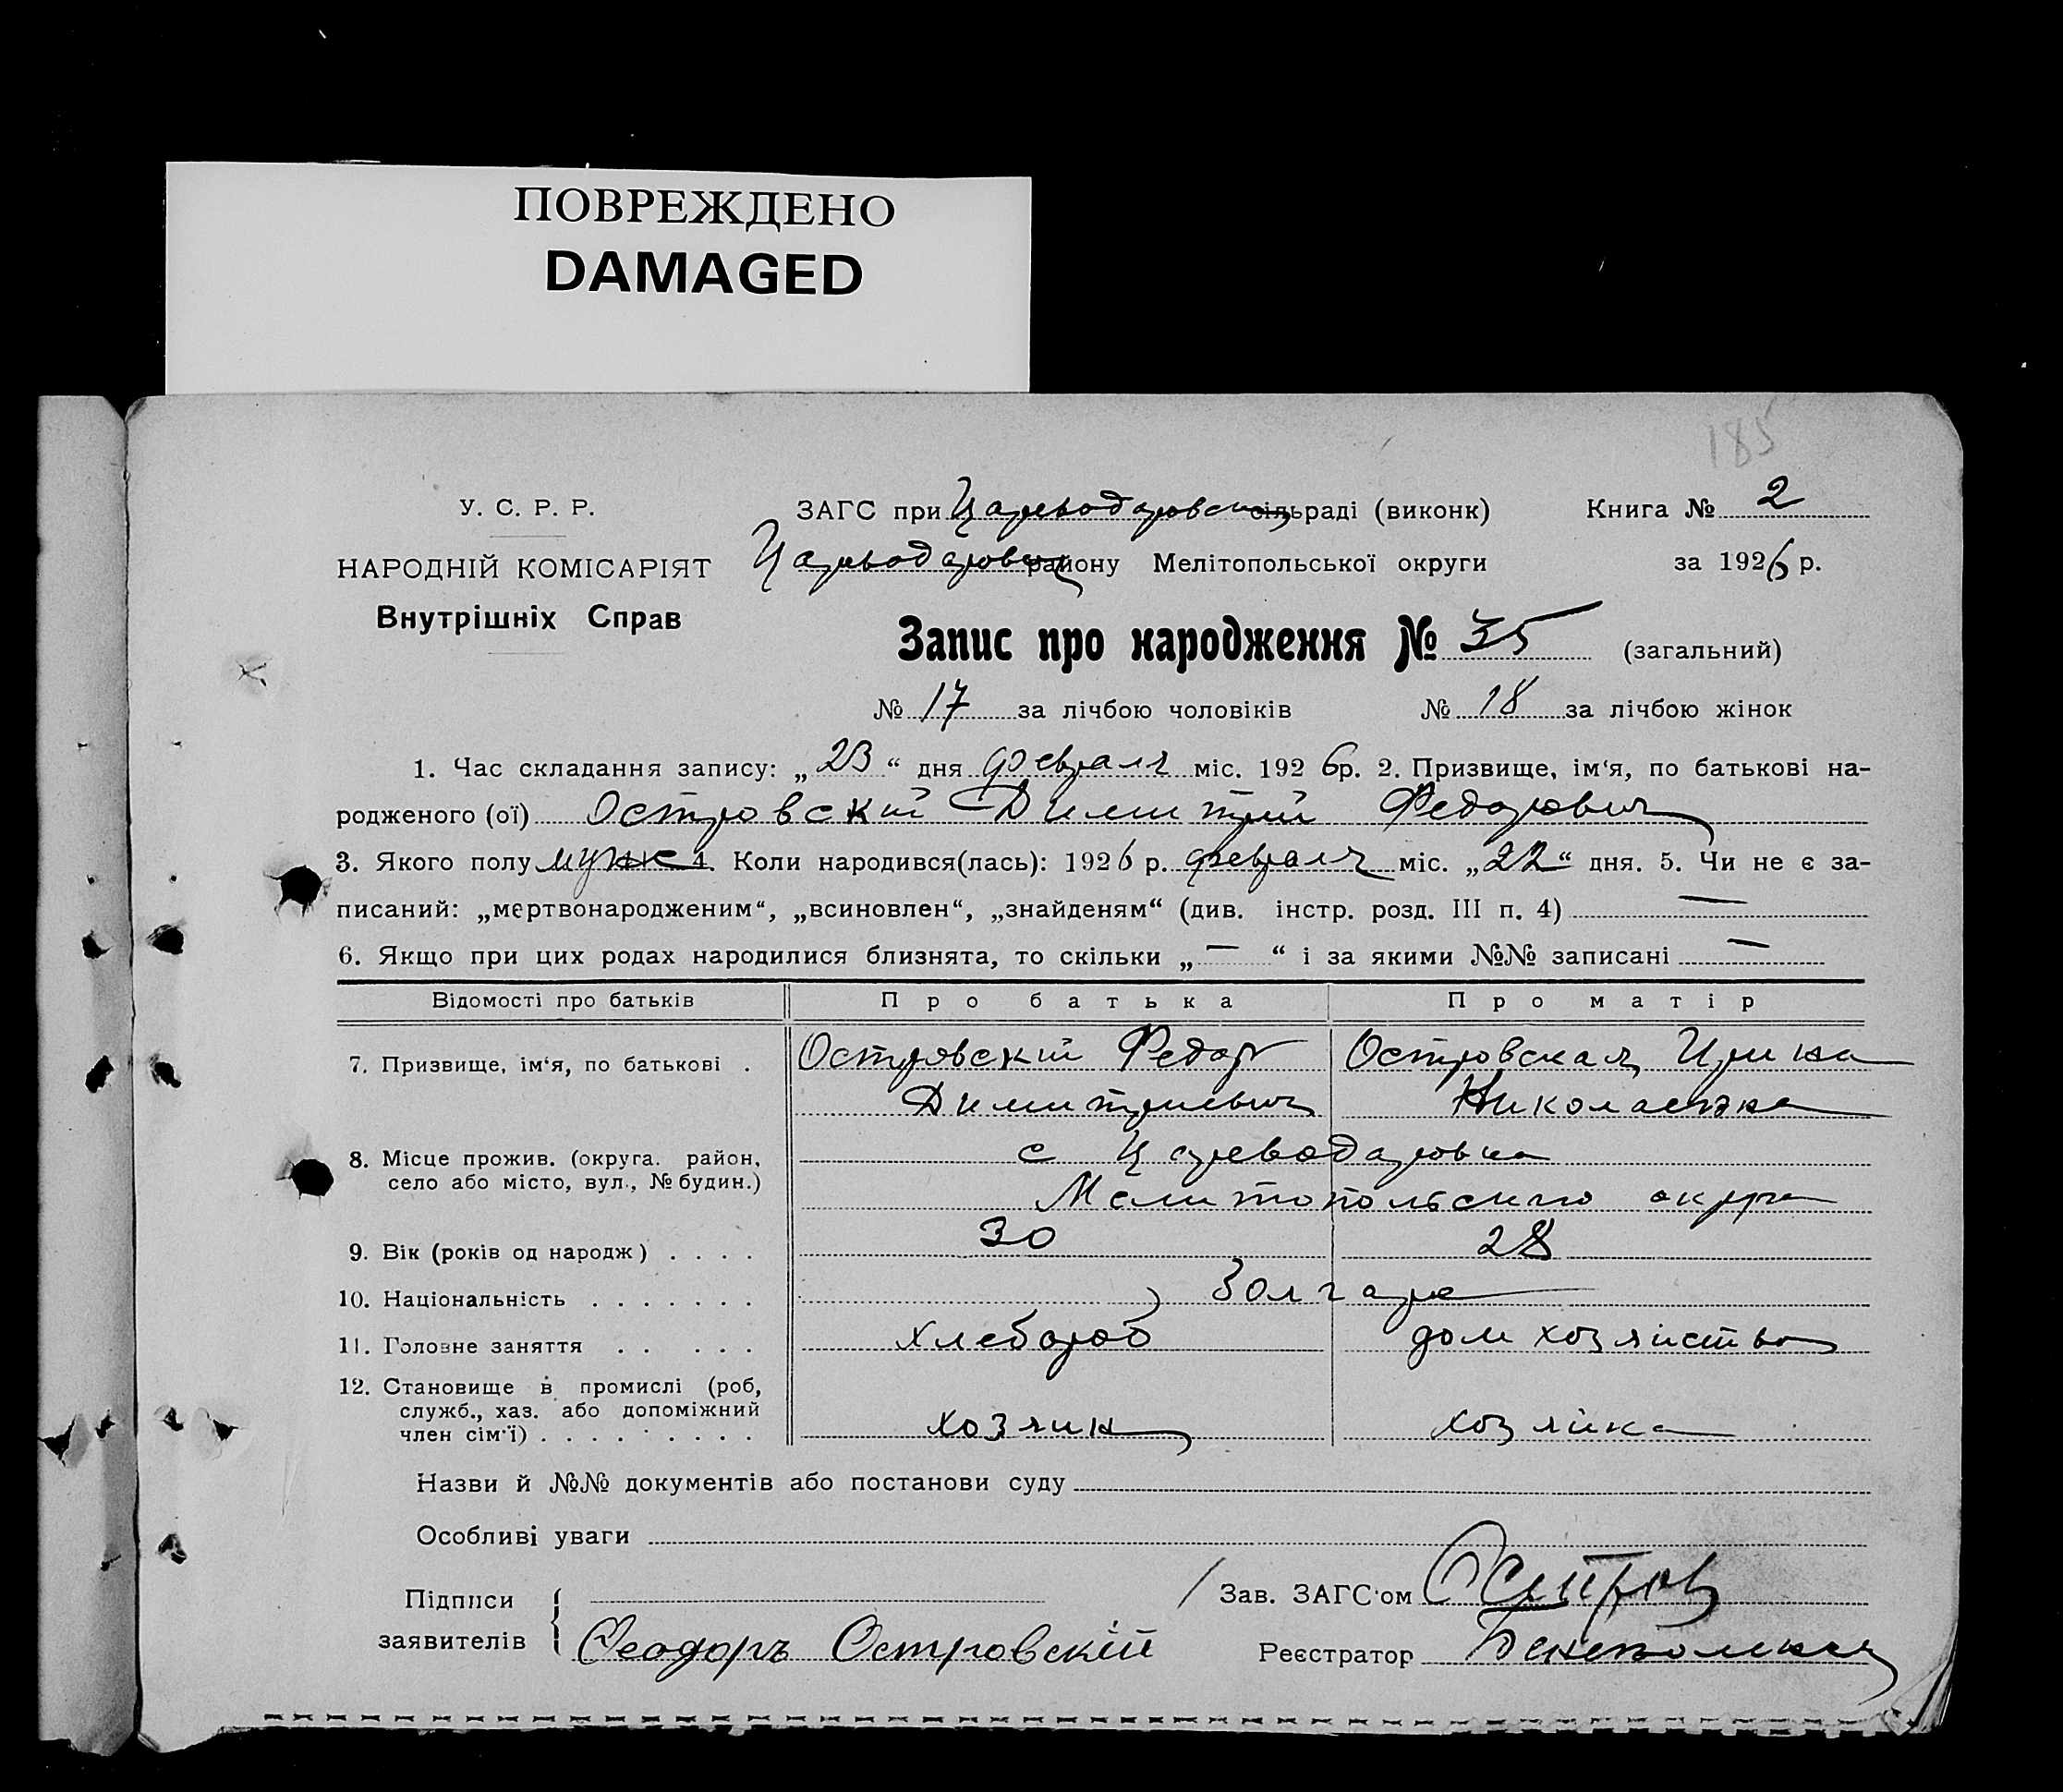 ПОВРЕЖДЕНО
DAMAGED
185
У. С. Р. Р.
НАРОДНІЙ КОМІСАРІЯТ
Внутрішніх Справ
ЗАГС при Цареводаровск сільраді (виконк)
Книга № 2
Цареводаровск району Мелітопольської округи
за 1926 р.
Запис про народження № 35 (загальний)
№ 17 за лічбою чоловіків № 18 за лічбою жінок
1. Час складання запису: „23“ дня февраля міс. 1926 р. 2. Призвище, ім‘я, по батькові на-
родженого (ої) Островский Димитрий Федорович
3. Якого полу муж 4. Коли народився(лась): 1926 р. февраля міс. „22“ дня. 5. Чи не є за-
писаний: „мертвонародженим“, „всиновлен“, „знайденям“ (див. інстр. розд. III п. 4) —
6. Якщо при цих родах народилися близнята, то скільки „—“ і за якими №№ записані —
Відомості про батьків Про батька Про матір
7. Призвище, ім‘я, по батькові . Островский Федор Островская Ирина
Димитриевич Николаевна
8. Місце прожив. (округа. район, с Цареводаровка
село або місто, вул., № будин.) Мелитопольского округа
9. Вік (років од народж) . . . . 30 28
10. Національність . . . . . . . Болгаре
11. Головне заняття . . . . . хлебороб дом хозяйство
12. Становище в промислі (роб,
служб., хаз. або допоміжний
член сім‘ї) . . . . . . . . . хозяин хозяйка
Назви й №№ документів або постанови суду
Особливі уваги
Підписи
заявителів Феодоръ Островскій
Зав. ЗАГС‘ом
Реєстратор